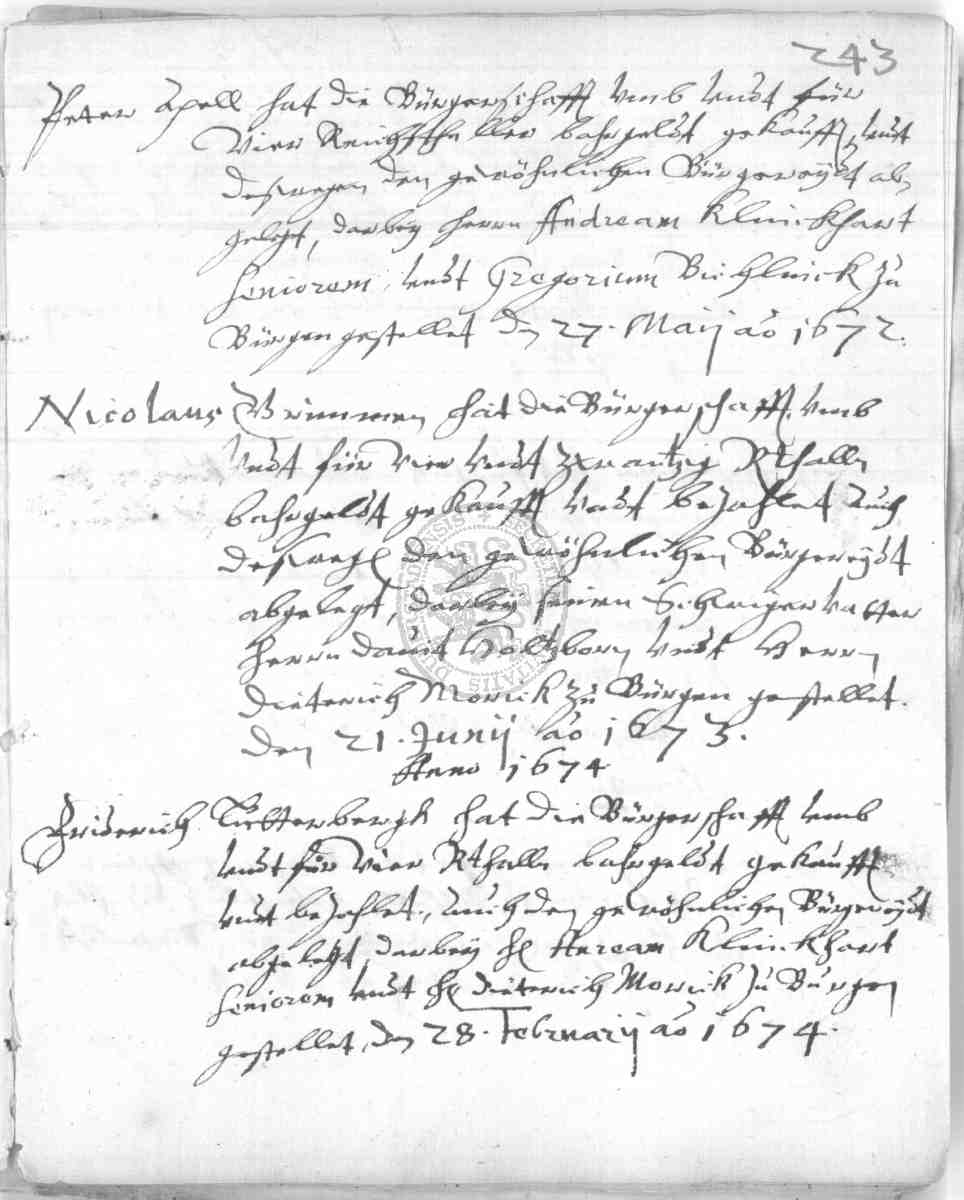 243
Peter Apell hat die Bürgerschafft vmb vndt für
Vier Reichsthaller bahrgeldt gekaufft, vndt
deßwegen den gewöhnlichen Bürgereydt ab
gelegt, darbey herrn Andream Klinckhart
Seniorem, vndt Gregorium zu
Bürgen gestellet den 27. Maij ao 1672.
Nicolaus hat die Bürgerschafft vmb
vndt für vier vndt zwantzig Rthall
bahrgeldt gekaufft vndt bezahlet Auch
deßwegen den gewöhnlichen Bürgereydt
abgelegt, darbey seinen Schwiger vatter
herrn Davidt Holtzborn vndt Herrn
Dieterich Morick zu Bürgen gestellet.
Den 21. Junij ao 1673.
Anno 1674
Friderich hat die Bürgerschafft vmb
vndt für vier Rthall bahrgeldt gekaufft
vndt bezahlet, auch den gewöhnlichen Bürgereydt
abgelegt, darbey H Klinckhart
Seniorem vndt H Dieterich Morick zu Bürgen
gestellet, den 28. Februarij ao 1674.